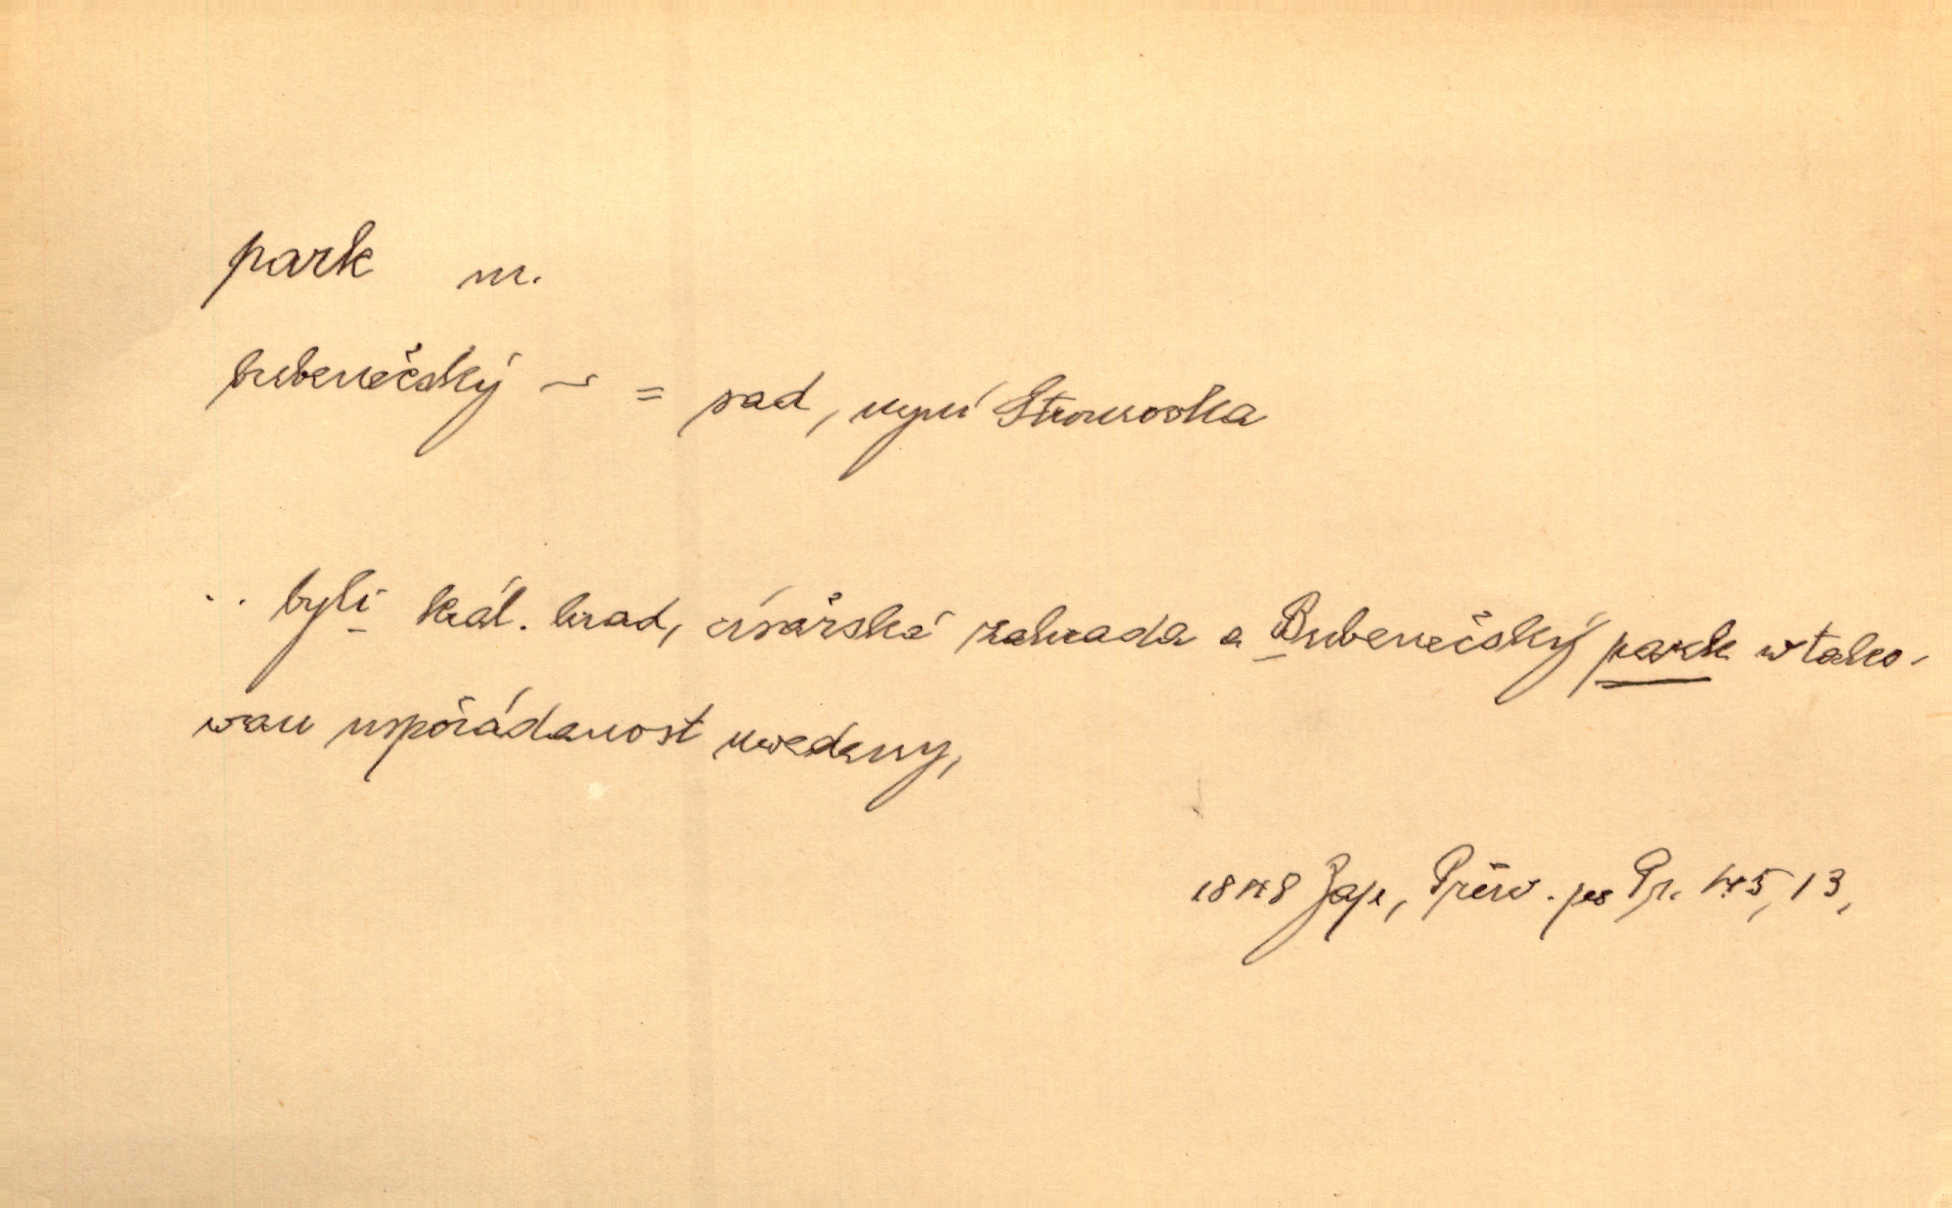 park m.
bubenečský ~ = sad, nyní Stromovka
.. byli král. hrad, císařská zahrada a Bubenečský park w tako-
wau uspořádanost uwedeny,
1848 Zap, Průw. po Pr. 45, 13,